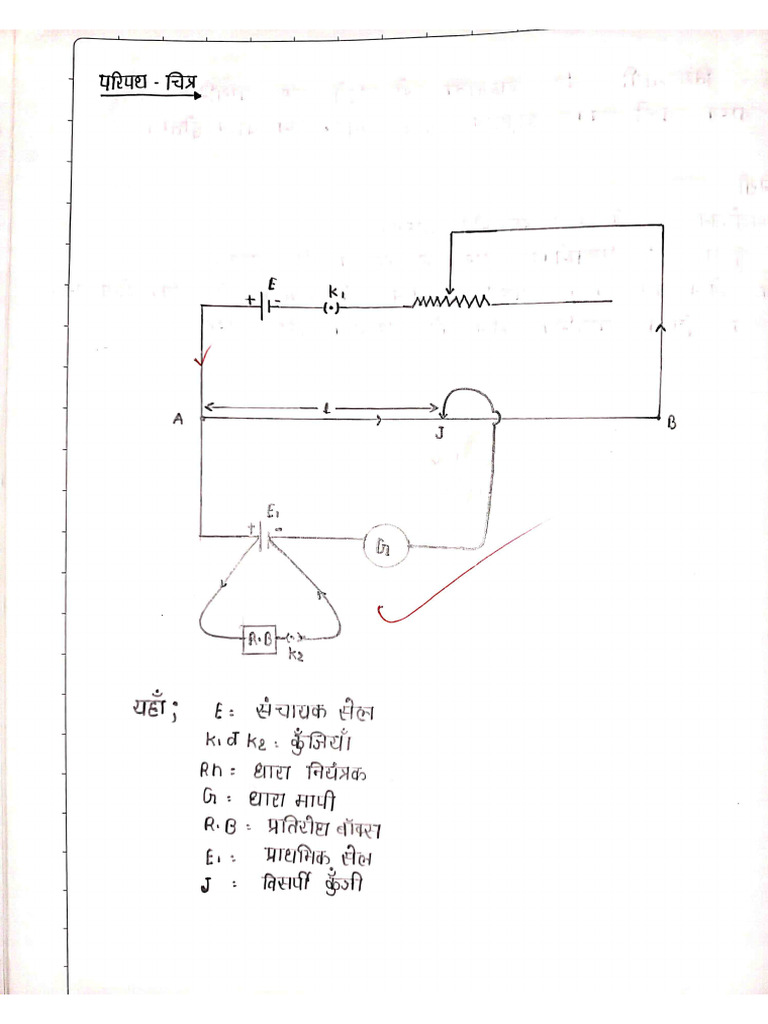 परिपथ - चित्र
E
+ -
K1
A
l
J
B
E1
+ -
G
R.B
K2
यहाँ; E: संचायक सेल
K1 व K2: कुँजियाँ
Rh: धारा नियंत्रक
G: धारा मापी
R.B: प्रतिरोध बॉक्स
E1: प्राथमिक सेल
J: विसर्पी कुँजी